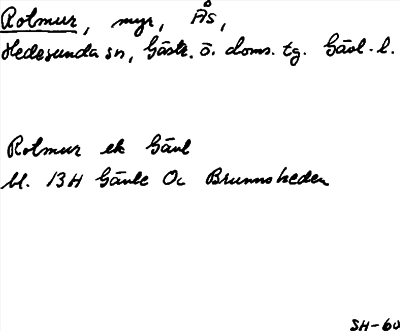 Rotmur, myr, Ås,
Hedesunda sn, Gästr. ö. doms. tg. Gävl. l.
Rotmur ek Gävl
bl. 13H Gävle Oc Brunnsheden
SH-60